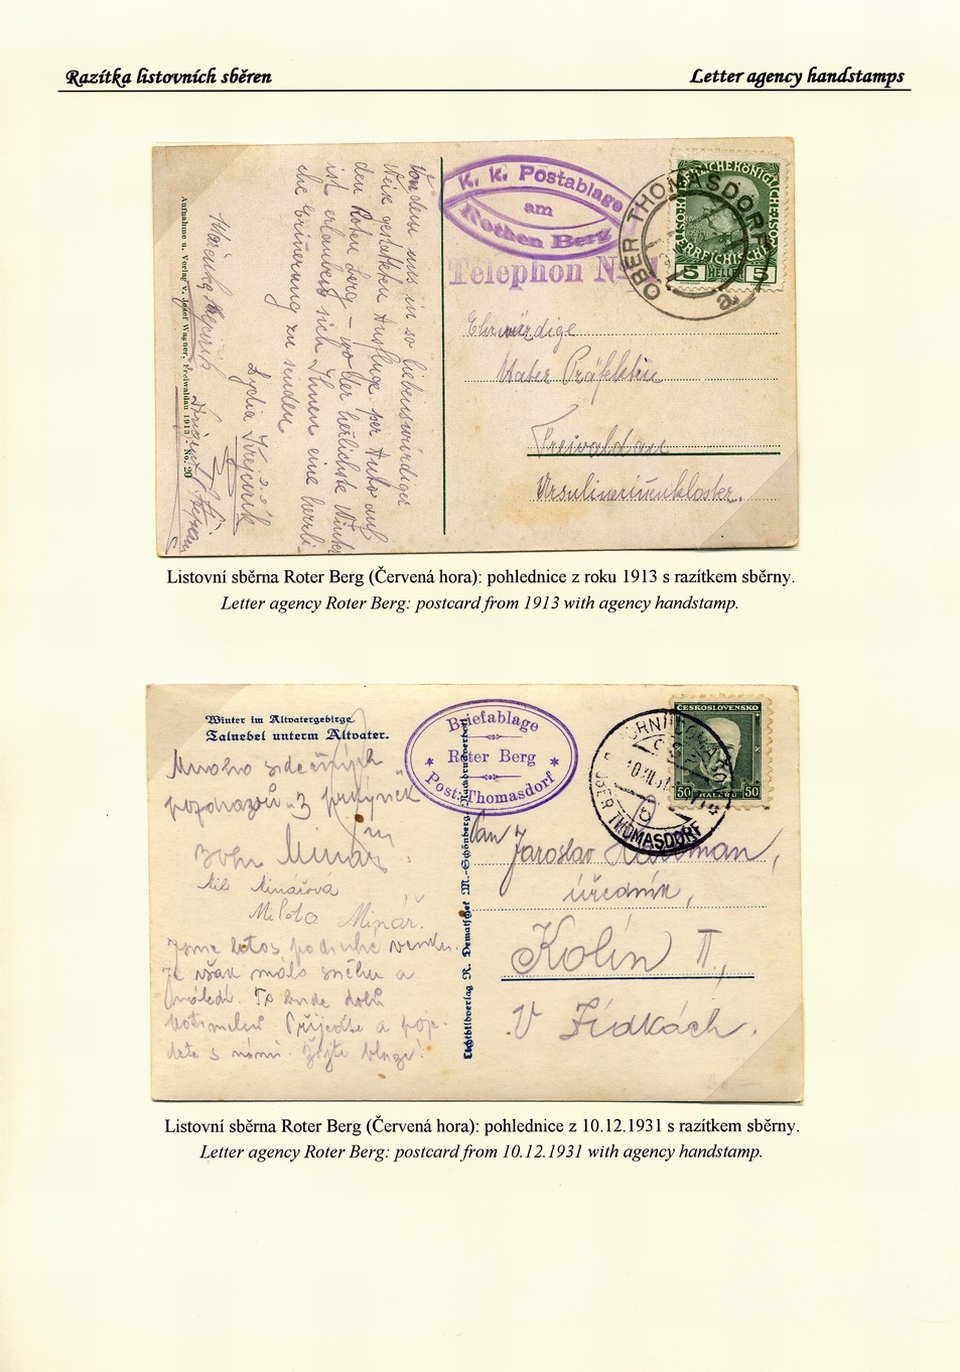 Razítka listovních sběren
Letter agency handstamps
Aufnahme u. Verlag v. Josef Wagner, Freiwaldau 1913 - No. 20
Von dem uns in so liebenswürdiger
Weise gestatteten Ausfluge per Auto auf
den Roten Berg – wo der herlichste Winter
ist erlauben sich Ihnen eine herrli
che Erinnerung zu senden
Lydia
K. k. Postablage
am
Rothen Berg
Telephon No
OBER THOMASDORF
5 HELLER 5
Ehrwürdige
Mater Präfektin
Freiwaldau
Ursulinerinenkloster.
Listovní sběrna Roter Berg (Červená hora): pohlednice z roku 1913 s razítkem sběrny.
Letter agency Roter Berg: postcard from 1913 with agency handstamp.
Winter im Altvatergebirge
Talnebel unterm Altvater.
Mnoho srdečných
pozdravů z prázdnin
Minář
Mila Minářová
Milota Minář.
Jsme letos podruhé venku.
Je však málo sněhu a
náledí. To bude dobů
Přijeďte a poje-
dete s námi. Žijte blaze!
Lichtbildverlag R. Dematschek M.-Schönberg. Nachdruck verboten
Briefablage
Roter Berg
Post: Thomasdorf
ČESKOSLOVENSKO
50 HALÉŘŮ 50
THOMASDORF
Pan Jaroslav
úředník,
Kolín II,
V Zídkách.
Listovní sběrna Roter Berg (Červená hora): pohlednice z 10.12.1931 s razítkem sběrny.
Letter agency Roter Berg: postcard from 10.12.1931 with agency handstamp.